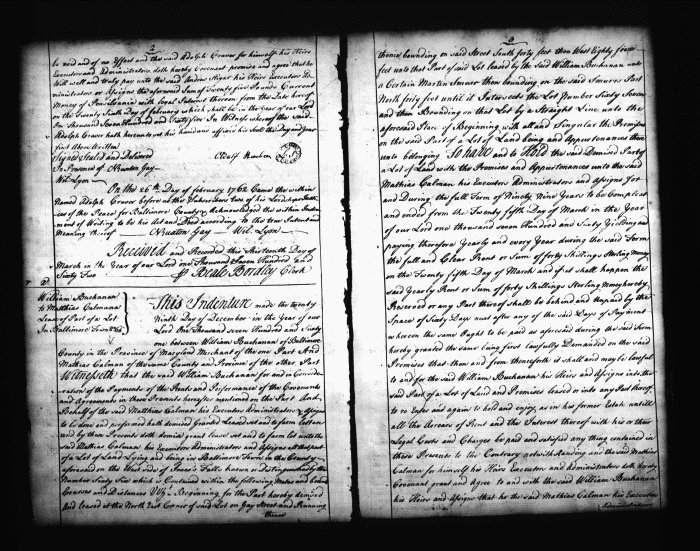 2
be void and of no Effect and the said Adolph Graver for himself his Heirs
Executors and Administrators doth hereby Covenant promise and agree that he
Will well and truly pay unto the said Andrew Stigar his Heirs Executors Ad
ministrators or Assigns the aforesaid Sum of Twenty five Pounds Current
Money of Pensilvania with Legal Interest thereon from the Date hereof
on the Twenty Sixth Day of February which shall be in the Year of our Lord
One Thousand Seven Hundred and Sixty five In Witness whereof the said
Adolph Graver hath hereunto set his hand and affixed his Seal the Day and Year
first Above Written
Signed Sealed and Delivered
In Presence of Nicuaton Gay
Wil. Lyon
Adolf
On the 26th Day of february 1762 Came the within
Named Adolph Graver before us the Subscribers two of his Lordships Justi
ces of the Peace for Baltimore County & Acknowledged the within Instru
ment of Writing to be his Act and Deed according to the true Intent and
Meaning thereof Gay Wil. Lyon
Received and Recorded this Thirteenth Day of
March in the Year of our Lord one Thousand Seven Hundred and
Sixty Two
Beale Bordley Clerk
William Buchanan
to Mathias Calman
Lease of Part of a Lot
In Baltimore Town
This Indenture made the twenty
Ninth Day of December in the Year of our
Lord One Thousand Seven Hundred and Sixty
one between William Buchanan of Baltimore
County in the Province of Maryland Merchant of the one Part And
Mathias Calman of the same County and Province of the other Part
Witnesseth that the said William Buchanan for and in Conside
ration of the Payments of the Rents and Performance of the Covenants
and Agreements in these Presents hereafter mentioned on the Part And
Behalf of the said Matthias Calman his Executors Administrators & Assigns
to be done and performed hath demised Granted Leased set and to farm Letten
and by these Presents doth demise grant lease set and to farm let unto the
said Mathias Calman his Executors Administrators and Assigns all that part
of a Lot of Land Lying and being in Baltimore Town in the County
aforesaid on the West side of Jones's Falls known or distinguished by the
Number Sixty Six which is Contained within the following Metes and Bounds
Courses and Distances Viz. Beginning for the Part hereby demised
and leased at the North East Corner of said Lot on Gay Street and Running
thence
3
thence bounding on said Street South forty feet then West Eighty four
feet unto that Part of said Lot leased by the said William Buchanan unto
a Certain Martin Smuer then bounding on the said Smuers Part
North forty feet until it Intersects the Lot Number Sixty Seven
and then Bounding on that Lot by a Straight Line unto the
aforesaid Place of Beginning with all and Singular the Premises
on the said Part of a Lot of Land being and Appurtenances there
unto belonging To have and to Hold the said Demised Part of
a Lot of Land with the Premises and Appurtenances unto the said
Mathias Calman his Executors Administrators and Assigns for
and During the full Term of Ninety Nine Years to be Compleat
and ended from the Twenty fifth Day of March in the Year
of our Lord one thousand Seven Hundred and Sixty Yielding and
paying therefore Yearly and every Year during the said Term
the full and Clear Rent or Sum of forty Shillings Sterling Money
on the Twenty fifth Day of March and if it shall happen the
said Yearly Rent or Sum of forty Shillings Sterling Money hereby
Reserved or any Part thereof shall be behind and unpaid by the
Space of Sixty Days next after any of the said Days of Payment
whereon the same Ought to be paid as aforesaid during the said Term
hereby granted the same being first lawfully Demanded on the said
Premises that then and from thenceforth it shall and may be lawful
to and for the said William Buchanan his Heirs and Assigns into the
said Part of a Lot of Land and Premises leased or into any Part thereof
to re Enter and again to hold and enjoy, as in his former Estate untill
all the Arrears of Rent and the Interest thereof with his or their
Legal Costs and Charges be paid and satisfied any thing contained in
these Presents to the Contrary notwithstanding and the said Mathias
Calman for himself his Heirs Executors and Administrators doth hereby
Covenant grant and Agree to and with the said William Buchanan
his Heirs and Assigns that he the said Mathias Calman his Executors
Administrators